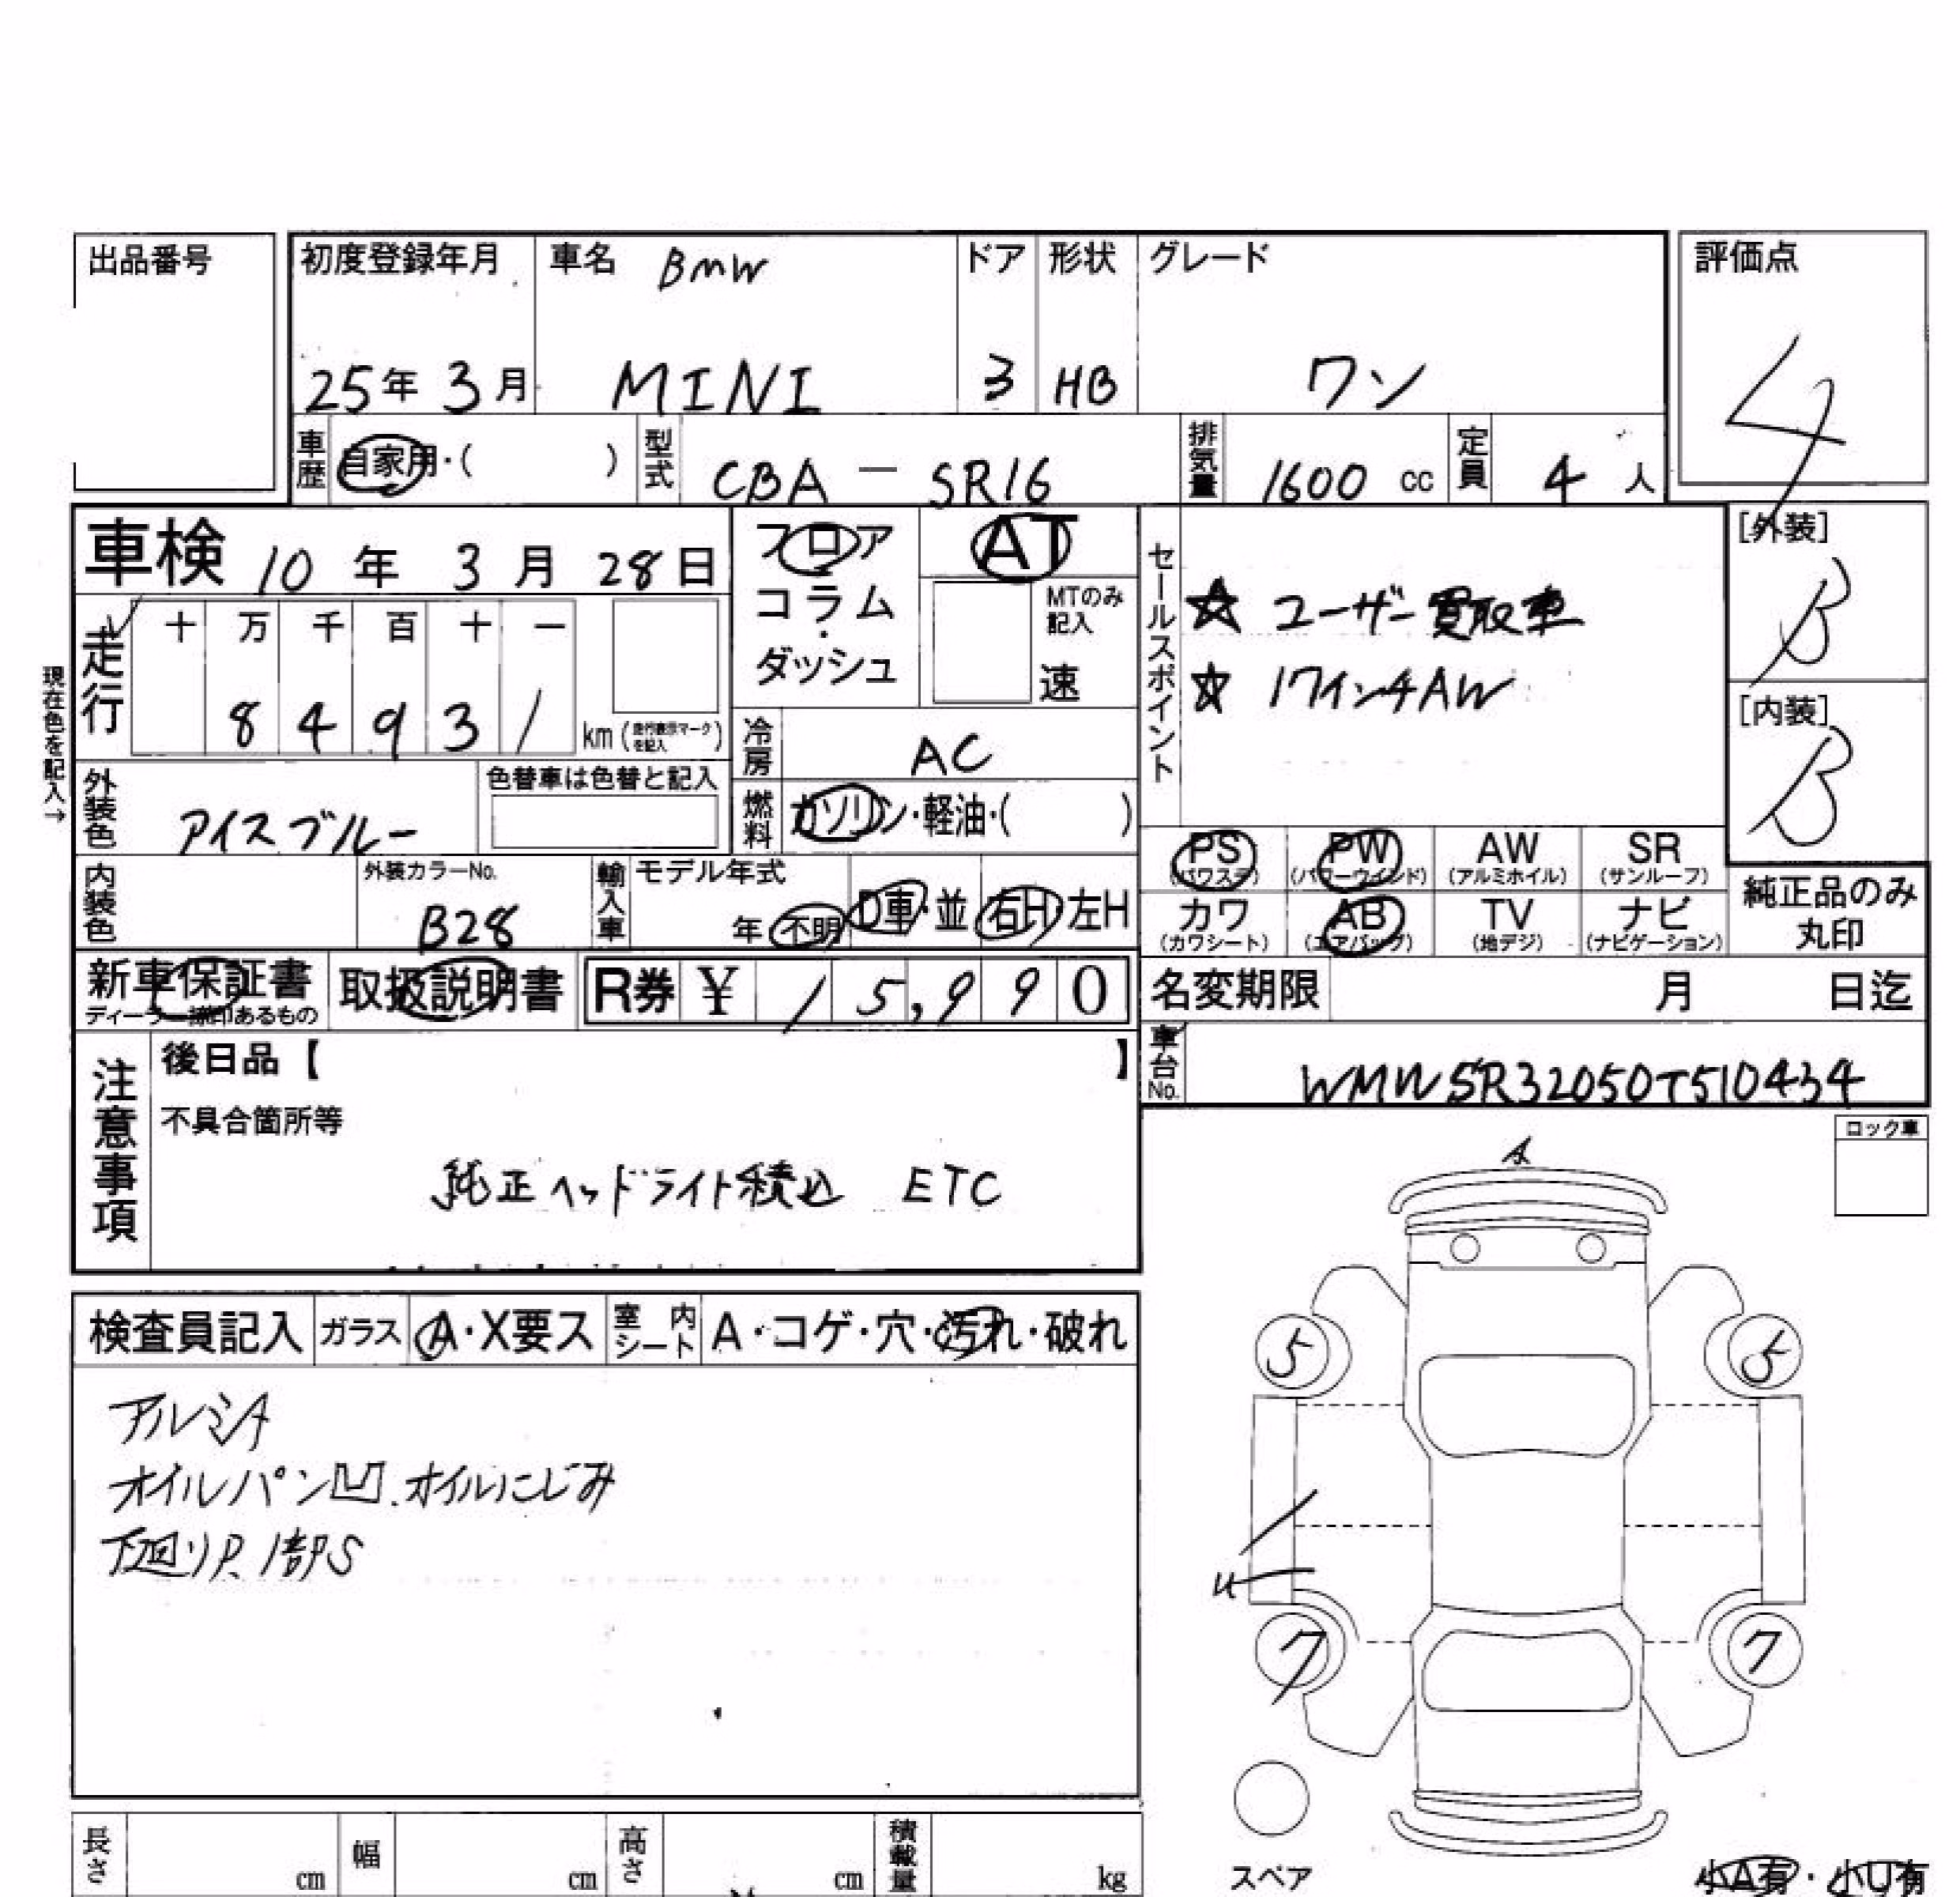 出品番号
初度登録年月 25年 3月
車名 BMW MINI
ドア 3
形状 HB
グレード ワン
評価点 4
車歴 自家用・( )
型式 CBA - SR16
排気量 1600 cc
定員 4 人
車検 10 年 3 月 28 日
フロア
コラム
・
ダッシュ
AT
MTのみ
記入
速
セールスポイント
☆ ユーザー買取車
☆ 17インチAW
[外装] B
[内装] B
現在色を記入→
走行 十 万 千 百 十 一
8 4 9 3 1 km (走行表示マークを記入)
冷房 AC
燃料 ガソリン・軽油・( )
外装色 アイスブルー
色替車は色替と記入
内装色
外装カラーNo. B28
輸入車 モデル年式 年 不明
D車・並 右H・左H
PS (パワステ) PW (パワーウインド) AW (アルミホイル) SR (サンルーフ)
カワ (カワシート) AB (エアバッグ) TV (地デジ) ナビ (ナビゲーション)
純正品のみ
丸印
新車保証書
ディーラー捺印あるもの
取扱説明書
R券 ¥ 15,990
名変期限 月 日迄
車台No. WMWSR32050T510434
注意事項
後日品【 】
不具合箇所等
純正ヘッドライト積込 ETC
ロック車
A
検査員記入 ガラス A・X要ス 室内シート A・コゲ・穴・汚れ・破れ
アルミA
オイルパン凹.オイルにじみ
下廻りP.1部S
5 5
U
7 7
スペア
小A有・小U有
長さ cm 幅 cm 高さ cm 積載量 kg